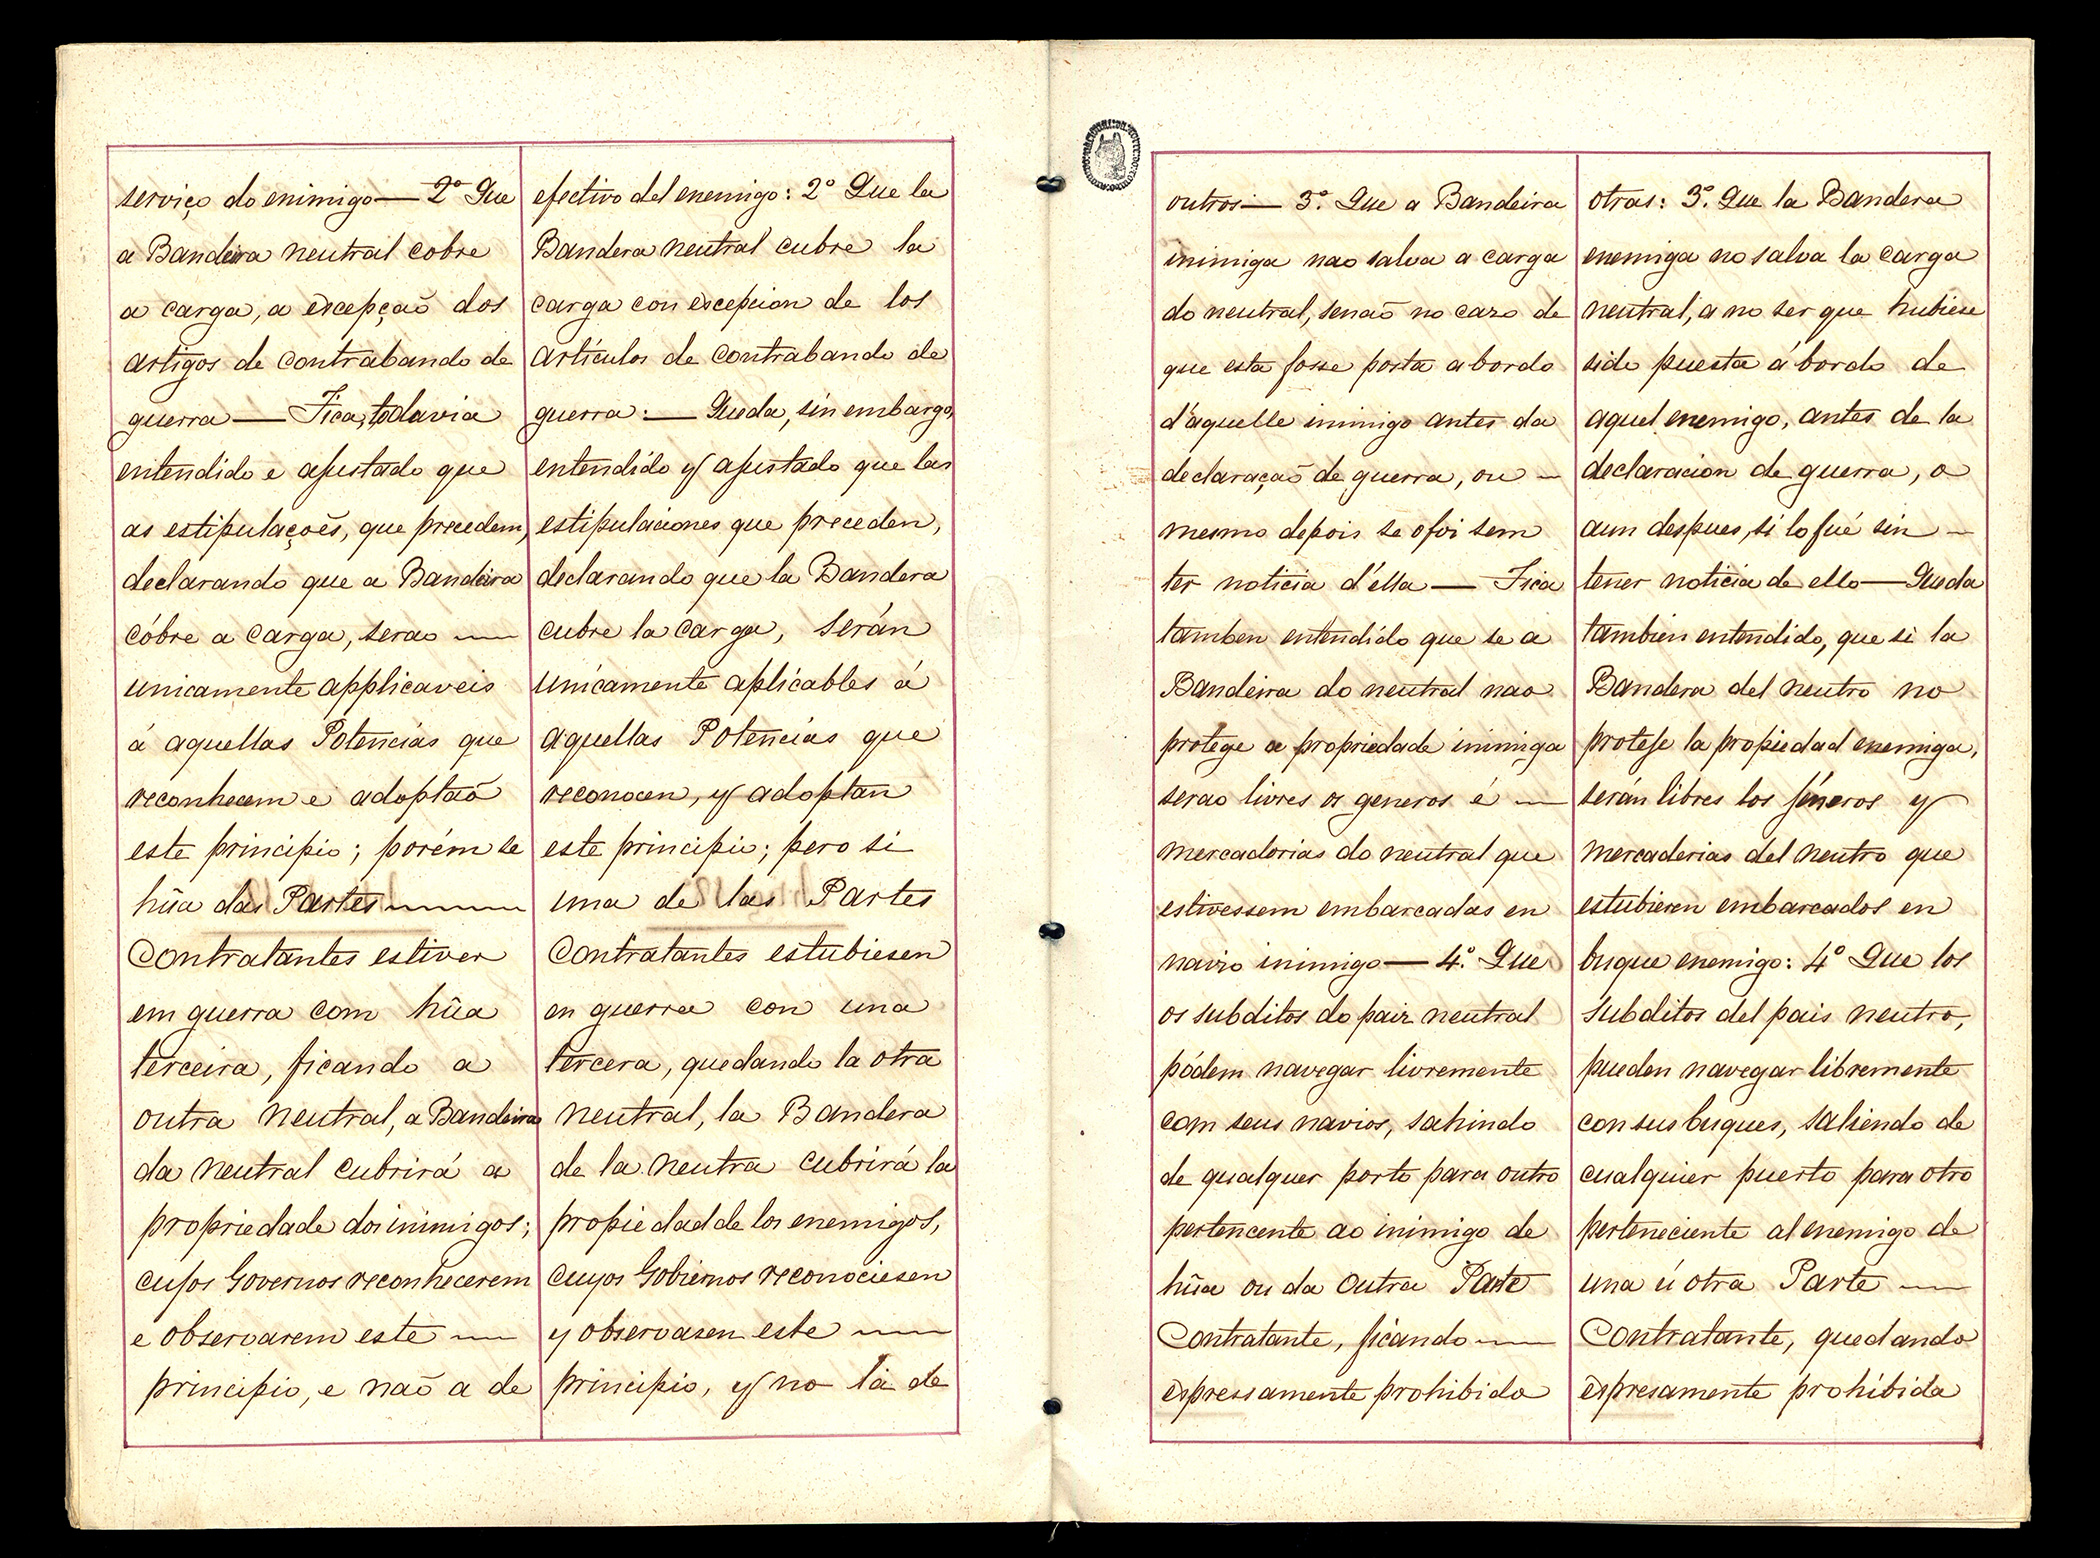 serviço do enimigo — 2º Que
a Bandeira neutral cobre
a carga, a excepçaõ dos
artigos de contrabando de
guerra — Fica, todavia
entendido e ajustado que
as estipulaçoẽs, que precedem,
declarando que a Bandeira
cóbre a carga, serao —
unicamente applicaveis
á aquellas Potencias que
reconhecem e adoptaõ
este principio; porém se
hũa das Partes —
Contratantes estiver
em guerra com hũa
terceira, ficando a
outra neutral, a Bandeira
da neutral cubrirá a
propriedade dos inimigos;
cujos Governos reconhecerem
e observarem este —
principio, e naõ a de
efectivo del enemigo: 2º Que la
Bandera neutral cubre la
carga con escepcion de los
artículos de contrabando de
guerra: — Queda, sin embargo,
entendido y ajustado que las
estipulaciones que preceden,
declarando que la Bandera
cubre la carga, serán
unicamente aplicables á
aquellas Potencias que
reconocen, y adoptan
este principio; pero si
una de las Partes
Contratantes estubiesen
en guerra con una
tercera, quedando la otra
neutral, la Bandera
de la neutra cubrirá la
propiedad de los enemigos,
cuyos Gobiernos reconociesen
y observasen este —
principio, y no la de
outros — 3º. Que a Bandeira
inimiga nao salva a carga
do neutral, senaõ no cazo de
que esta fosse posta a bordo
d'aquelle inimigo antes da
declaraçaõ de guerra, ou —
mesmo depois se o foi sem
ter noticia d'ella — Fica
tamben entendido que se a
Bandeira do neutral nao
protege a propriedade inimiga
serao livres os generos é —
mercadorias do neutral que
estivessem embarcadas en
navio inimigo — 4º. Que
os subditos do paiz neutral
pódem navegar livremente
com seus navios, sahindo
de qualquer porto para outro
pertencente ao inimigo de
hũa ou da outra Parte
Contratante, ficando —
expressamente prohibido
otras: 3º. Que la Bandera
enemiga no salva la carga
neutral, a no ser que hubiese
sido puesta á bordo de
aquel enemigo, antes de la
declaracion de guerra, o
aun despues, si lo fué sin —
tener noticia de ello — Queda
tambien entendido, que si la
Bandera del neutro no
proteje la propiedad enemiga,
serán libres los jéneros y
mercaderias del neutro que
estubieren embarcados en
buque enemigo: 4º Que los
subditos del pais neutro,
pueden navegar libremente
con sus buques, saliendo de
cualquier puerto para otro
perteneciente al enemigo de
una ú otra Parte —
Contratante, quedando
espresamente prohibida